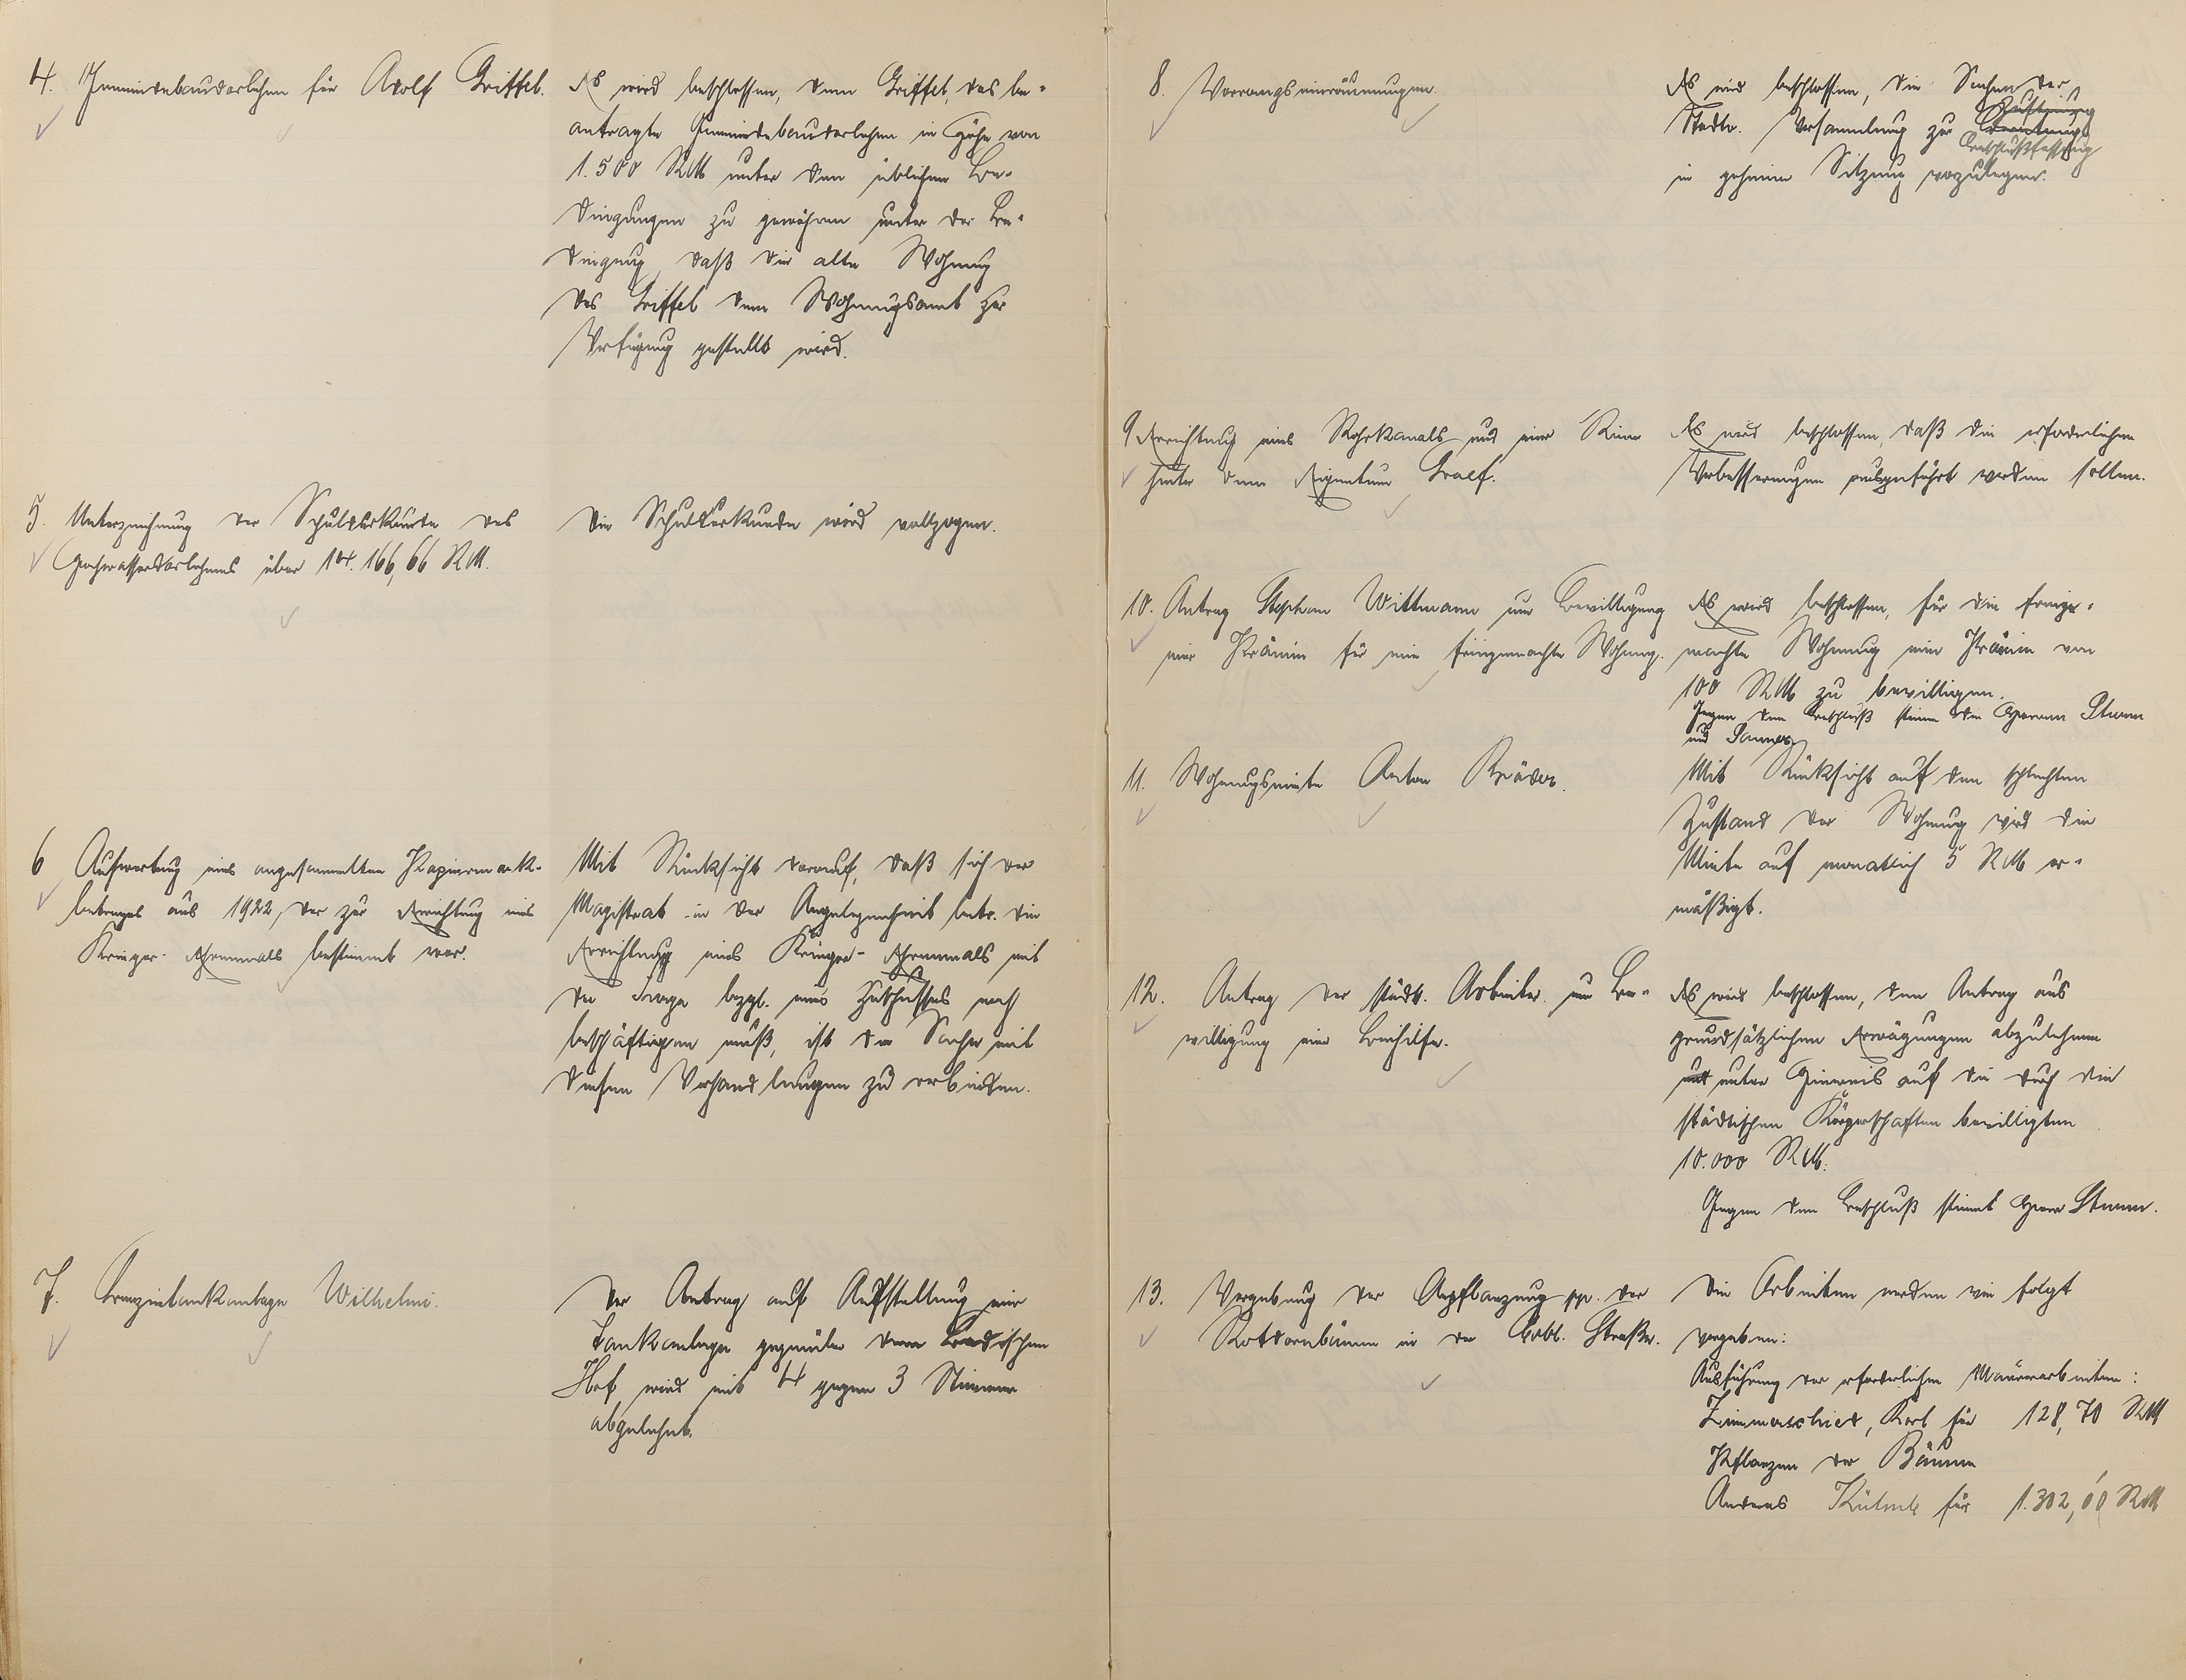 4. Gemeindebaudarlehen für Adolf Griffel.
Es wird beschlossen, dem Griffel, das be-
antragte Gemeindebaudarlehen in Höhe von
1.500 RM unter den üblichen Be-
dingungen zu gewähren unter der Be-
dingung, daß die alte Wohnung
des Griffel dem Wohnungsamt zur
Verfügung gestellt wird.
5. Unterzeichnung der Schuldurkunde des
Hochwasserdarlehens über 14.166,66 RM.
Die Schuldurkunde wird vollzogen.
6 Aufwertung eines angesammelten Papiermark-
betrages aus 1922, der zur Errichtung eines
Krieger-Ehrenmals bestimmt war.
Mit Rücksicht darauf, daß sich der
Magistrat in der Angelegenheit betr. die
Errichtung eines Krieger-Ehrenmals mit
der Frage bezgl. eines Zuschusses noch
beschäftigen muß, ist die Sache mit
diesen Verhandlungen zu verbinden.
7. Benzintankanlage Wilhelmi.
Der Antrag auf Aufstellung einer
Tankanlage gegenüber dem Badischen
Hof wird mit 4 gegen 3 Stimmen
abgelehnt.
8. Vorrangseinräumungen.
Es wird beschlossen, die Sachen der
Stadtv. Versammlung zur
Beschlußfassung
in geheimer Sitzung vorzulegen.
9 Errichtung eines Rohrkanals und einer Rinne
hinter dem Eigentum Graef.
Es wird beschlossen, daß die erforderlichen
Verbesserungen ausgeführt werden sollen.
10. Antrag Stephan Wittmann um Bewilligung
einer Prämie für eine freigemachte Wohnung.
Es wird beschlossen, für die freige-
machte Wohnung eine Prämie von
100 RM zu bewilligen.
Gegen den Beschluß stimmen die Herren Sturm
und
11. Wohnungsmiete Anton Bräder.
Mit Rücksicht auf den schlechten
Zustand der Wohnung wird die
Miete auf monatlich 5 RM er-
mäßigt.
12. Antrag der städt. Arbeiter um Be-
willigung einer Beihilfe.
Es wird beschlossen, den Antrag aus
grundsätzlichen Erwägungen abzulehnen
und unter Hinweis auf die durch die
städtischen Körperschaften bewilligten
10.000 RM.
Gegen den Beschluß stimmt Herr Sturm.
13. Vergebung der Anpflanzung pp. der
Rotdornbäume in der Cobl. Straße.
Die Arbeiten werden wie folgt
vergeben:
Ausführung der erforderlichen Maurerarbeiten:
Zimmerschied, Karl für 128,70 RM
Pflanzen der Bäume
Andreas für 1.302,00 RM